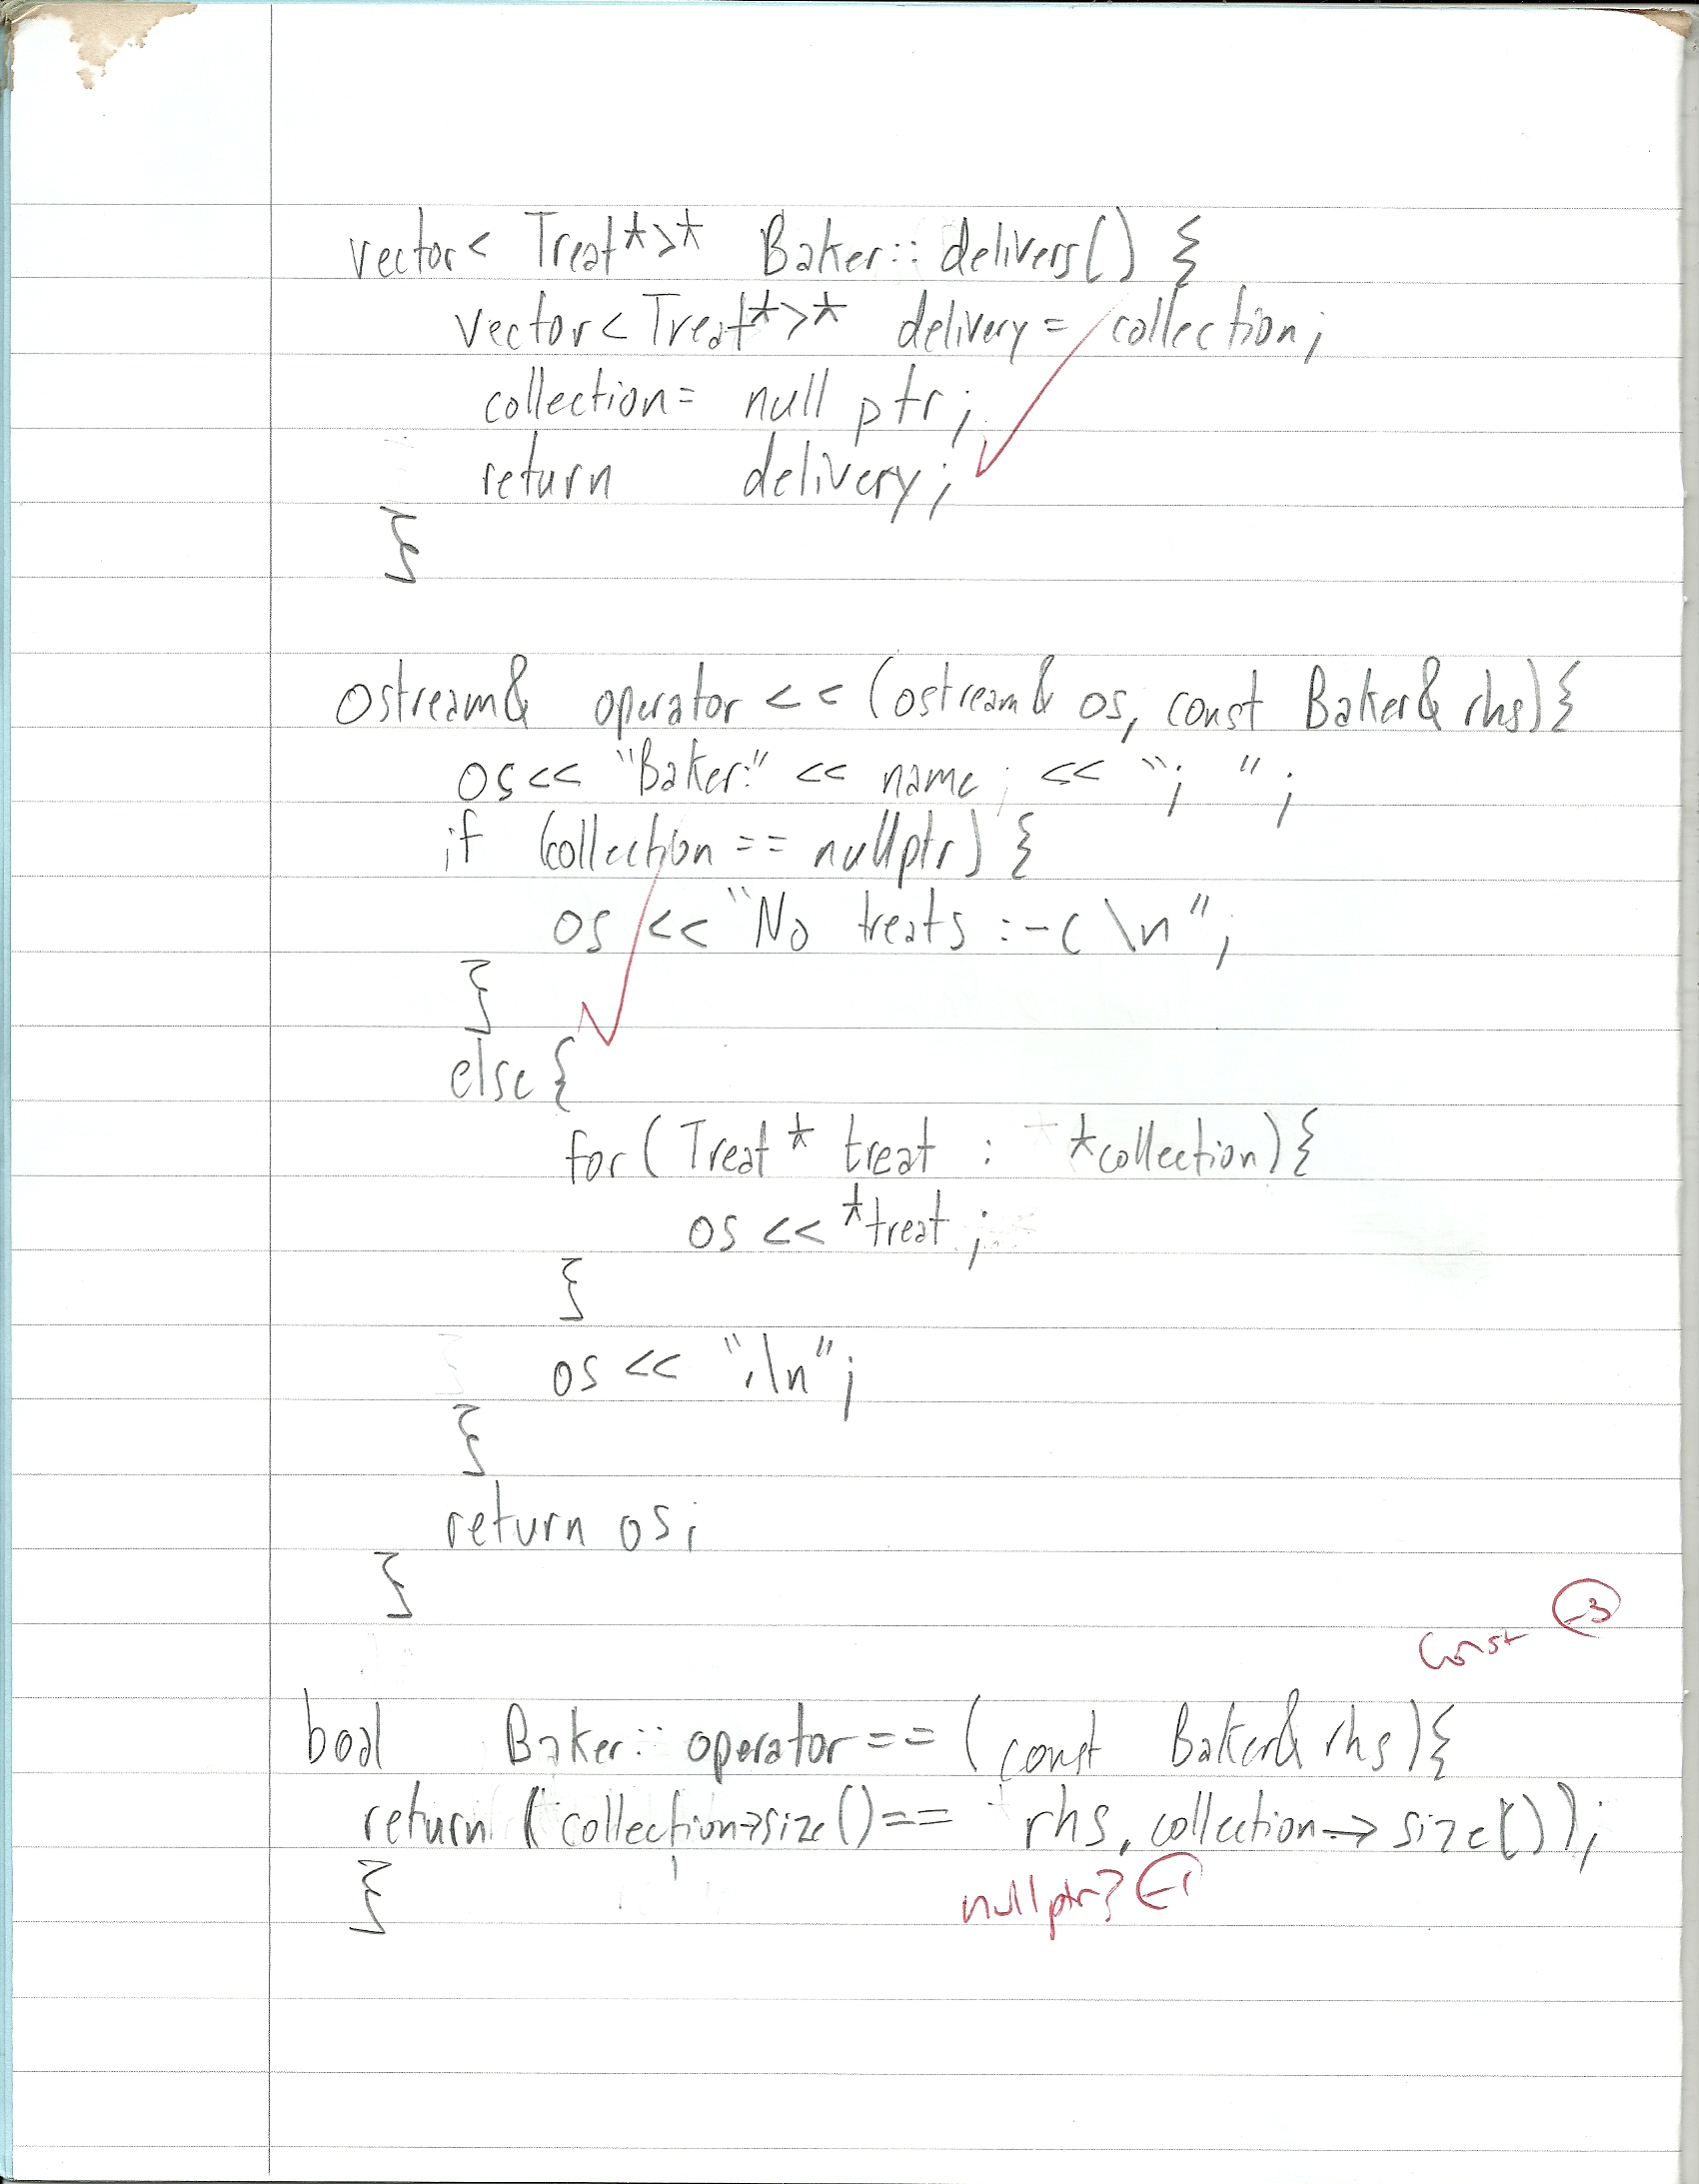 vector< Treat*>* Baker:: delivers() {
vector< Treat*>* delivery = collection;
collection = null ptr;
return delivery;
}
ostream& operator << (ostream& os, const Baker& rhs){
os << "Baker:" << name ; << "; ";
if (collection == nullptr) {
os << "No treats :-( \n";
}
else {
for ( Treat* treat : *collection){
os << *treat ;
}
os << ".\n";
}
return os;
}
-3
const
bool Baker:: operator== (const Baker& rhs){
return ( collection->size() == rhs.collection-> size());
}
nullptr? -1